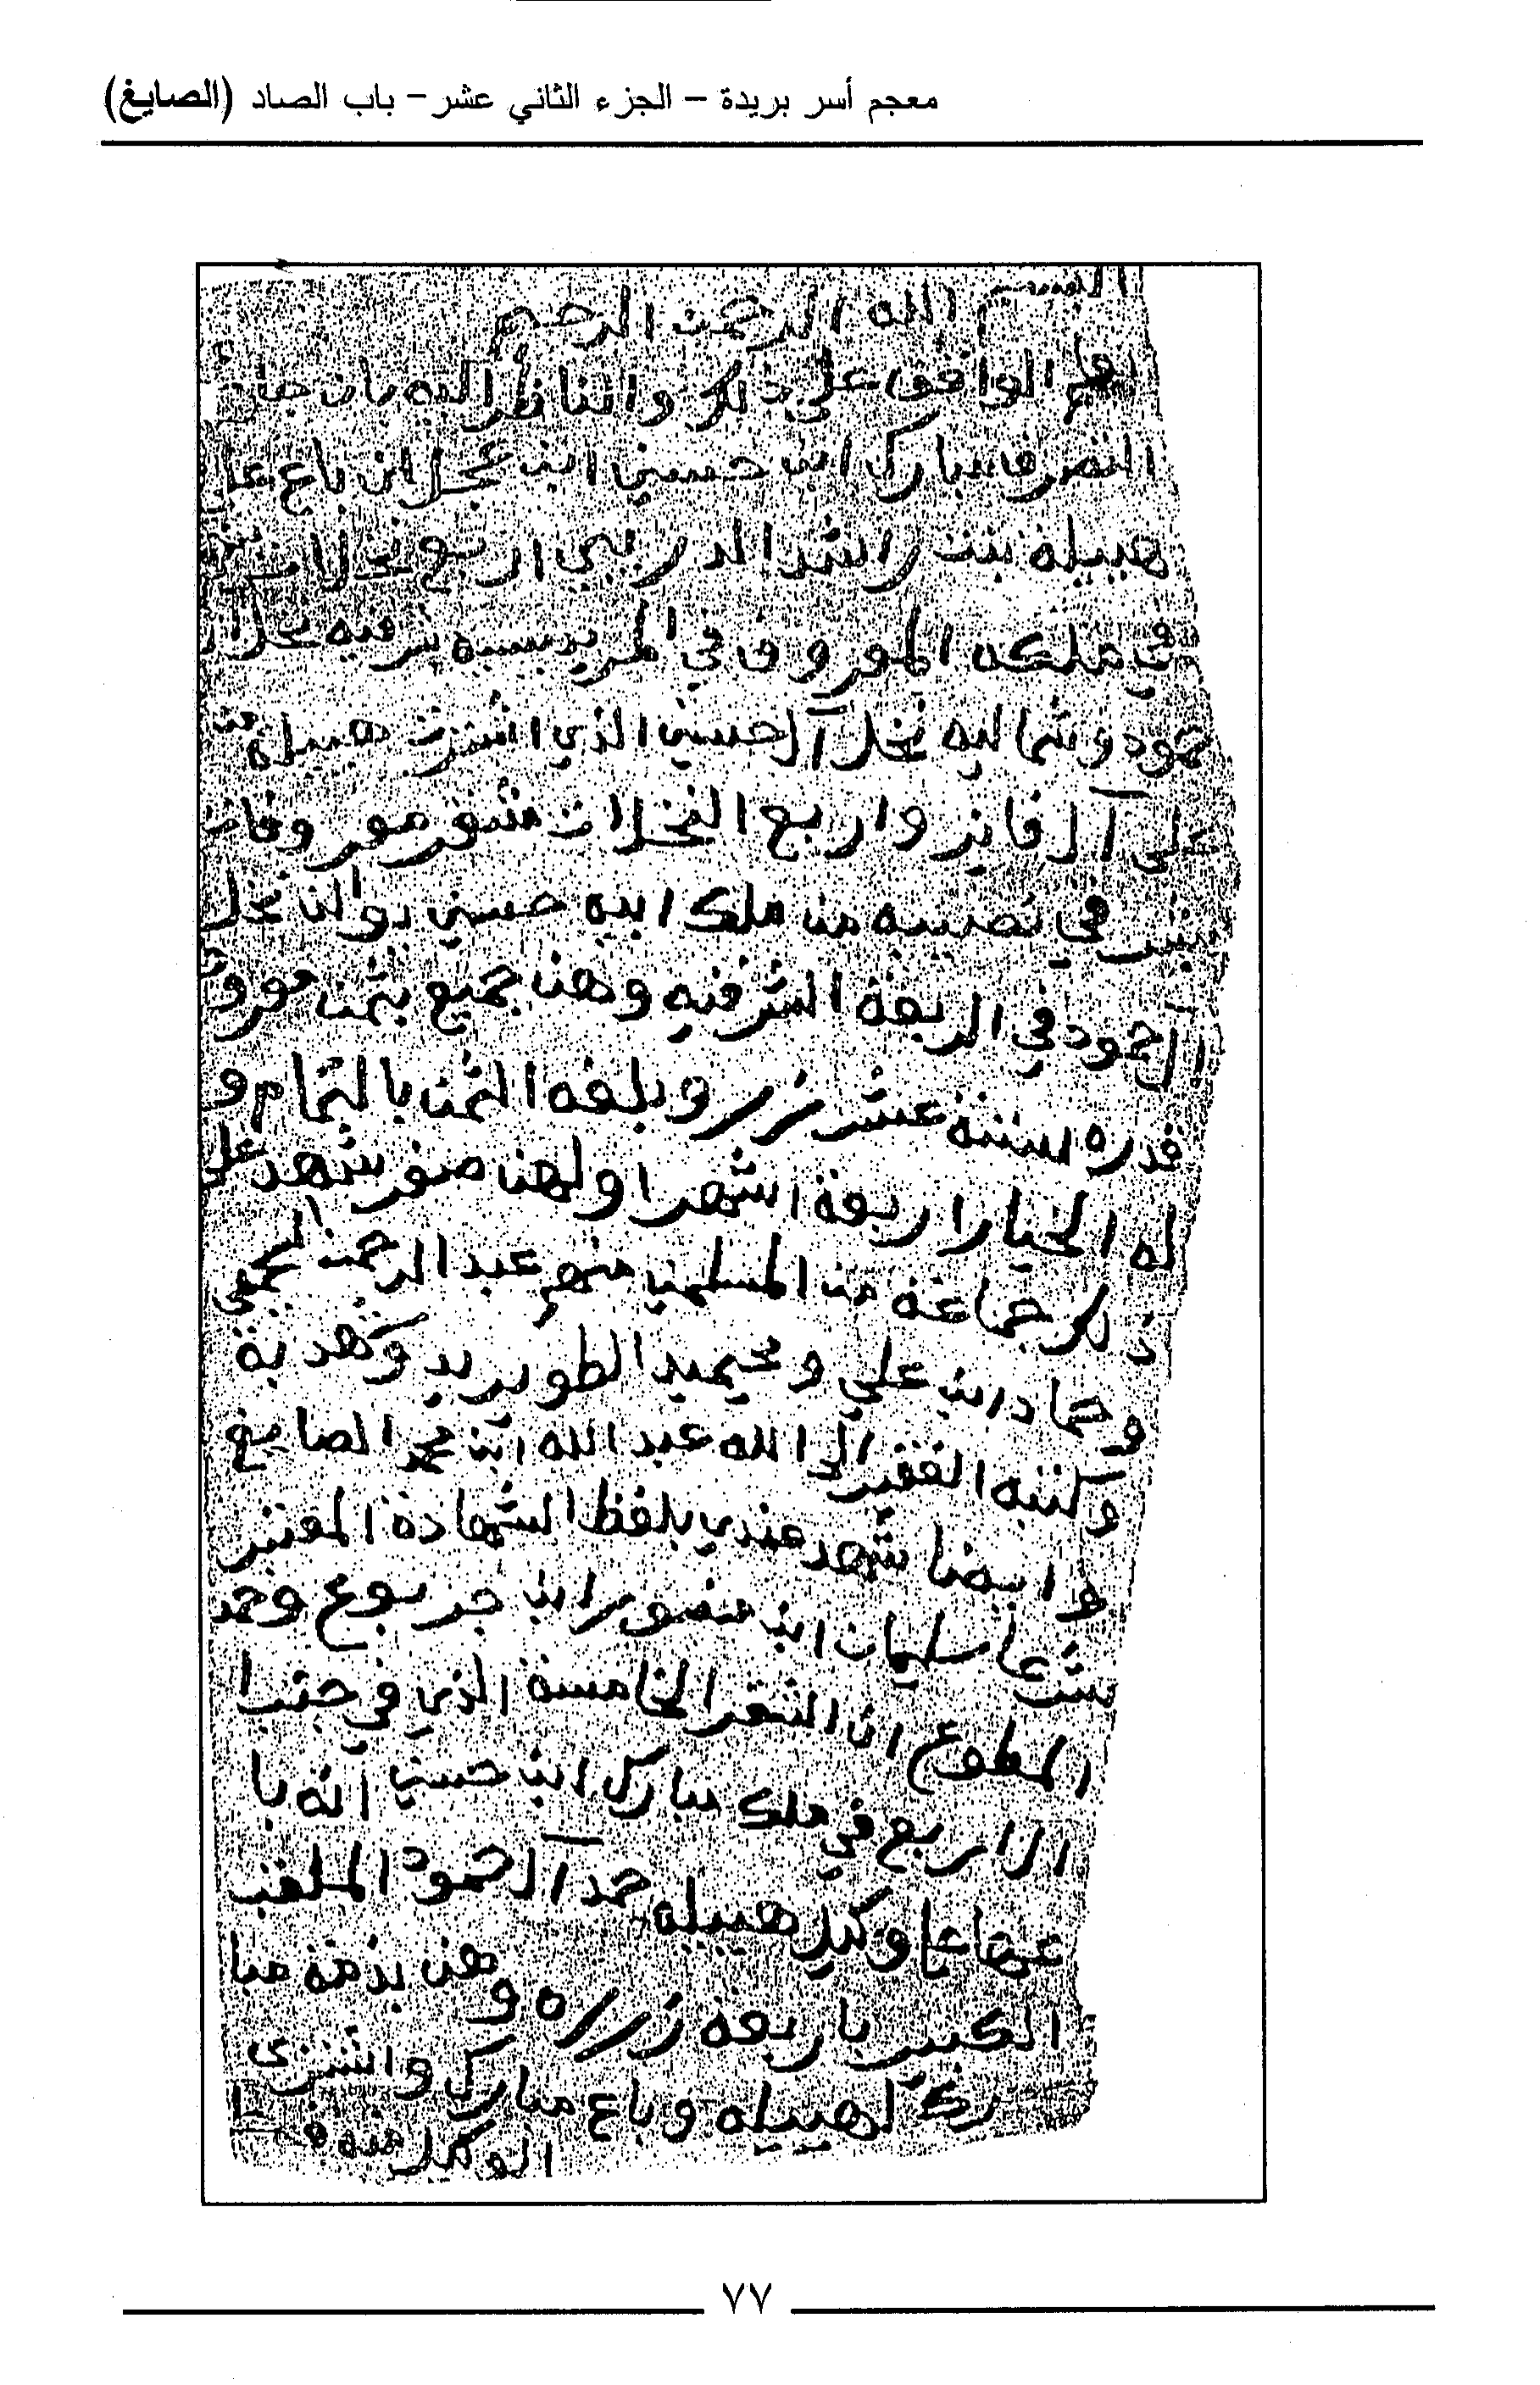 معجم أسر بريدة – الجزء الثاني عشر – باب الصاد (الصايغ)
بسم الله الرحمن الرحيم
الواقف على ذلك والناظر اليه بان
مبارك ابن حسين ابن باع على
هبيله بنت راشد الدريبي اربع نخلات
في ملكه المعروف في المريدسيه نخل
حمود وشماليه نخل آل حسين الذي اشترت هبيلة من
على آل فايز واربع النخلات شقر
في نصيبه من ملك ابيه حسين نخل
آل حمود في الربعة الشرقيه وهن جميع بثمن
قدره ستة عشر زر وبلغه الثمن بالتمام و
له الخيار اربعة اشهر اولهن صفر شهد على
ذلك جماعة من المسلمين منهم عبد الرحمن
وحماد ابن علي ومحيميد الطويريد
وكتبه الفقير الى الله عبد الله ابن محمد الصايغ
وايضا شهد عندي بلفظ الشهادة المعتبر
شرعا سليمان ابن منصور ابن جربوع وحمد
المطوع ان الشقر الخامسة الذي في
الاربع في ملك مبارك ابن حسين انه با
عها على وكيل هبيله حمد آل حمود الملقب
الكبير باربعة زرره وهن بذمة مبا
رك لهبيله وباع مبارك واشترى
الوكيل
٧٧